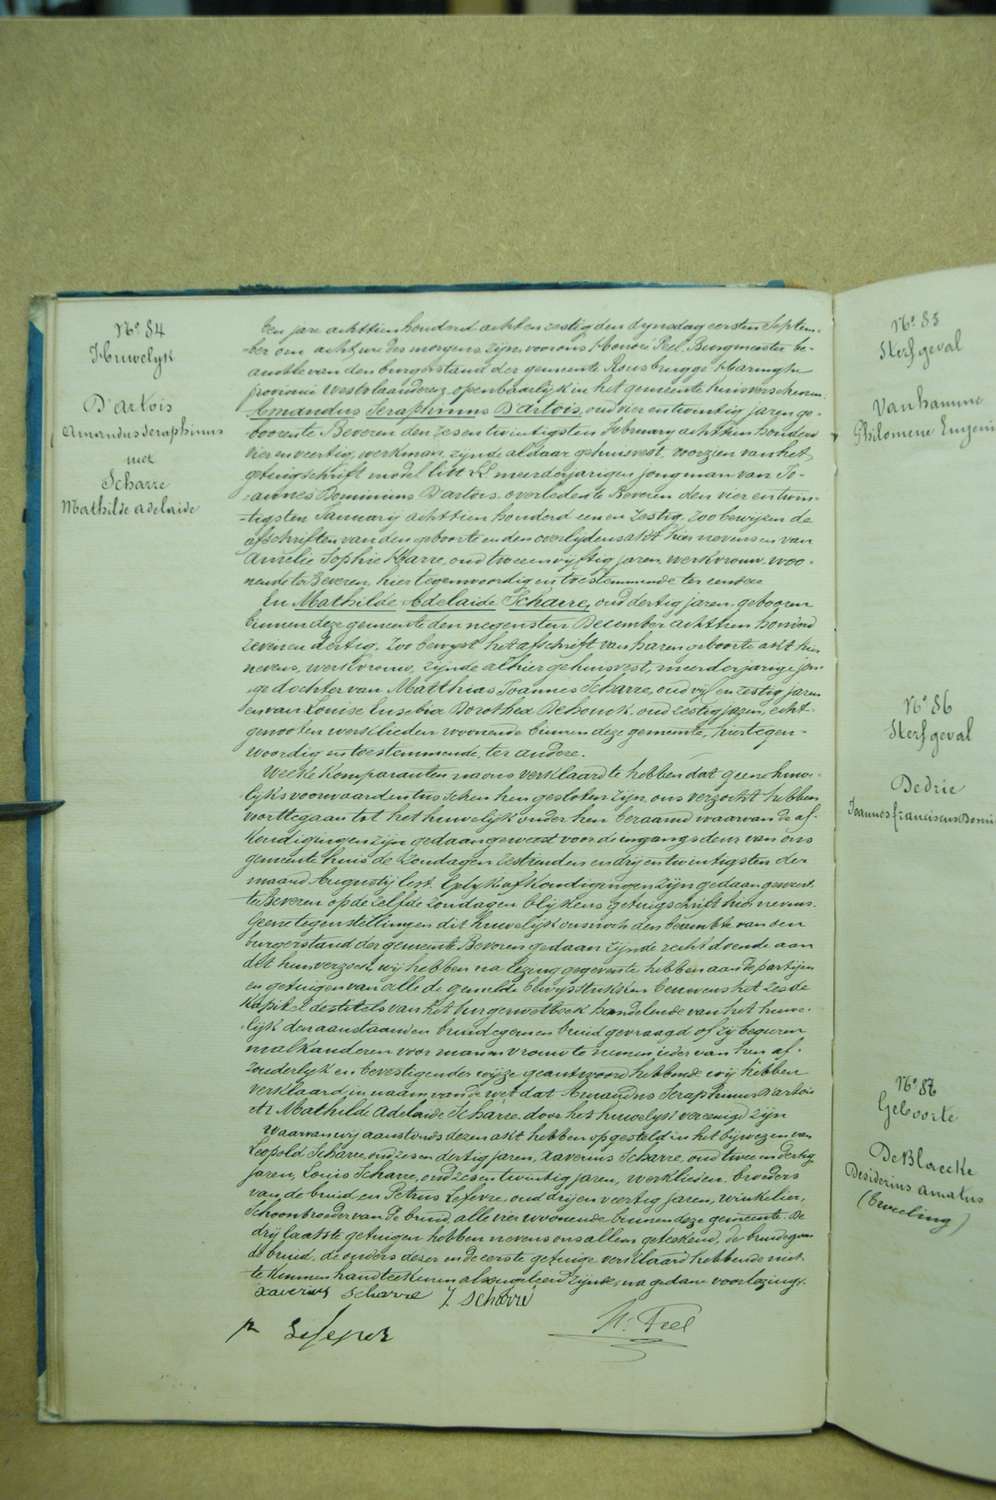 N° 84
Huwelyk
D'Artois
Amandus Seraphinus
met
Scharre
Mathilde Adelaide
Ten jare achttien honderd acht en zestig den dynsdag eersten Septem-
ber om acht ure des morgens zyn voor ons Honoré Peel, Burgmeester be-
ambte van den burgerstand der gemeente Rousbrugge Haringhe
provincie Westvlaanderen, openbaarlijk in het gemeente huis verschenen
Amandus Seraphinus D'artois, oud vier en twintig jaren ge-
boren te Beveren den zes en twintigsten February achttien honderd
vier en veertig, werkman, zynde aldaar gehuisvest, voorzien van het
getuigschrift model litt LL meerderjarigen jongman van Jo-
annes Dominicus D'artois overleden te Beveren den vier en twin-
tigsten January achttien honderd een en zestig, zoo bewijzen de
afschriften van den geboorte en den overlydens akt hier nevens en van
Amelie Sophie oud twee en vyftig jaren, werkvrouw, woo-
nende te Beveren, hier tegenwoordig en toestemmende ter eendere
En Mathilde Adelaide Scharre, oud dertig jaren, geboren
binnen deze gemeente den negensten December achttien honderd
zeven en dertig, zoo bewyst het afschrift van haren geboorte akt hier
nevens, werkvrouw, zijnde alhier gehuisvest, meerderjarige jon-
ge dochter van Matthias Joannes Scharre, oud vijf en zestig jaren
en van Louise Eusebia Dorothea Dehouck, oud zestig jaren, echt-
genooten werklieden woonende binnen deze gemeente, hier tegen-
woordig en toestemmende, ter andere.
Welke komparanten na ons verklaard te hebben dat geene huwe-
lijks voorwaarden tusschen hen gesloten zijn, ons verzocht hebben
voorttegaan tot het huwelijk onder hen beraamd waarvan de af-
kondigingen zijn gedaan geweest voor de ingangsdeur van ons
gemeente huis de zondagen zestienden en dry en twintigsten der
maand Augusty lest. Gelyke afkondigingen zijn gedaan geweest
te Beveren op de zelfde zondagen blijkens getuigschrift hier nevens.
Geene tegenstellingen dit huwelijk ons noch den beambte van den
burgerstand der gemeente Beveren gedaan zijnde recht doende aan
dit hun verzoek, wij hebben na lezing gegeven te hebben aan de partijen
en getuigen van alle de gemelde bewysstukken benevens het zesde
kapitel des titels van het burgerwetboek handelende van het huwe-
lijk den aanstaanden bruidegom en bruid gevraagd of zy begeeren
malkanderen voor man en vrouw te nemen ieder van hen af-
zonderlyk en bevestigender wijze geantwoord hebbende wij hebben
verklaard in naam van de wet dat Amandus Seraphinus D'artois
et Mathilde Adelaide Scharre door het huwelyk vereenigd zijn
Waarvan wij aanstonds dezen akt hebben opgesteld in het bijwezen van
Leopold Scharre, oud zes en dertig jaren, Xaverius Scharre, oud twee en dertig
jaren, Louis Scharre, oud zes en twintig jaren, werklieden, broeders
van de bruid, en Petrus Lefevre, oud dry en veertig jaren, winkelier,
Schoonbroeder van de bruid, alle vier woonende binnen deze gemeente. De
drij laatste getuigen hebben nevens ons alleen geteekend, de bruidegom
de bruid, de ouders dezer en de eerste getuige verklaard hebbende niet
te kunnen handteekenen als ongeleerd zijnde, na gedane voorlezing.
Xaverius Scharre
Scharré
H. Peel
N° 85
Sterfgeval
Vanhamme
Philomene Eugeni
N° 86
Sterfgeval
Dedrie
Joannes franciscus Domini
N° 87
Geboorte
DeBlaecke
Desiderius amatus
(tweeling)